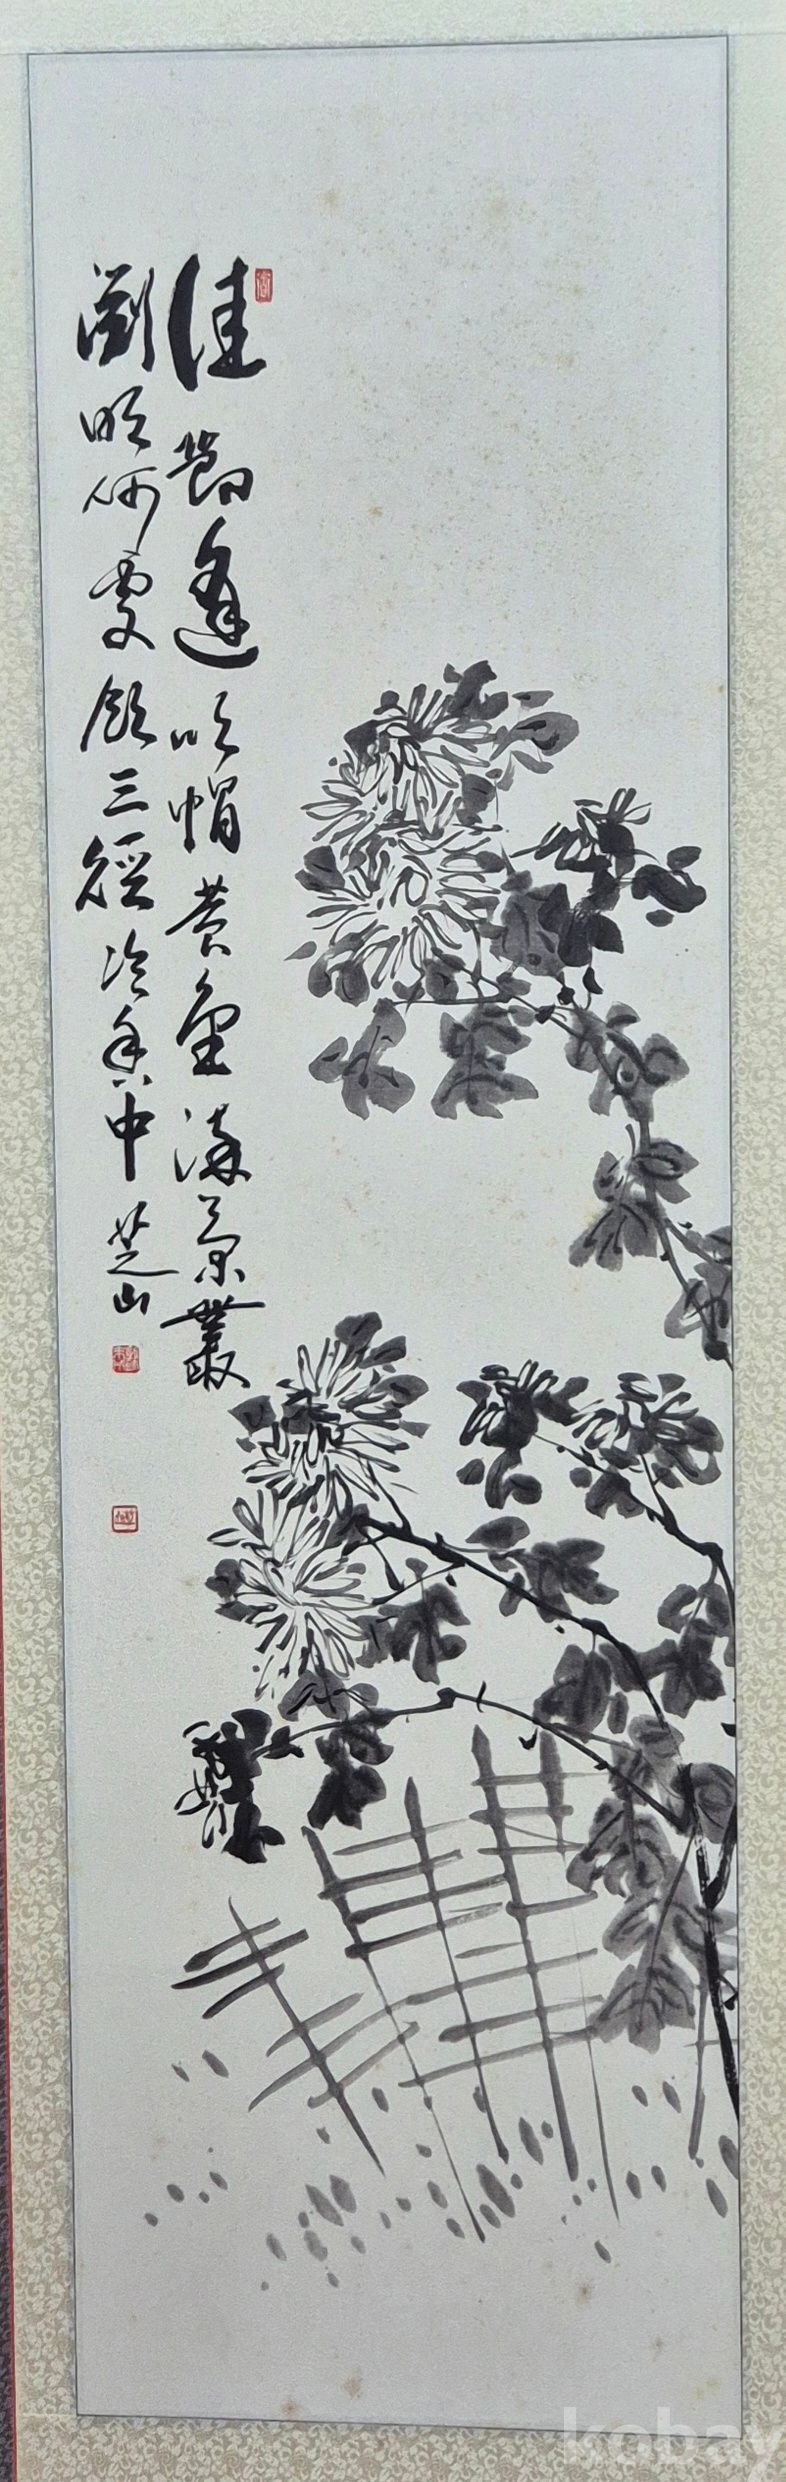 佳節逢吹帽黃金染菊叢
淵明何處飲三徑冷香中 芝山
kobay